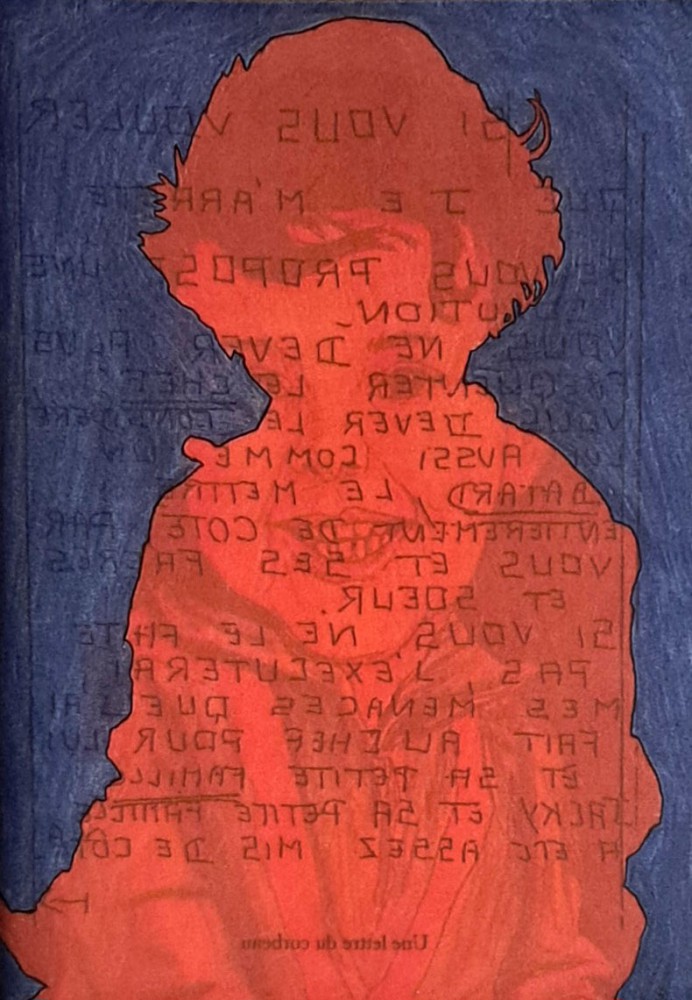 SI VOUS VOULER
QUE JE M'ARRETE
JE VOUS PROPOSE UNE
SOLUTION
VOUS NE DEVER PLUS
FREQUENTER LE CHEF
VOUS DEVER LE CONSIDERE
LUI AUSSI COMME UN
BATARD, LE METTRE
ENTIEREMENT DE COTE PAR
VOUS ET SES FRERES
ET SOEUR.
SI VOUS NE LE FAITE
PAS, J'EXECUTERAI
MES MENACES QUE J'AI
FAIT AU CHEF POUR LUI
ET SA PETITE FAMILLE
JACKY ET SA PETITE FAMILLE
A ETE ASSEZ MIS DE COTE
Une lettre du corbeau